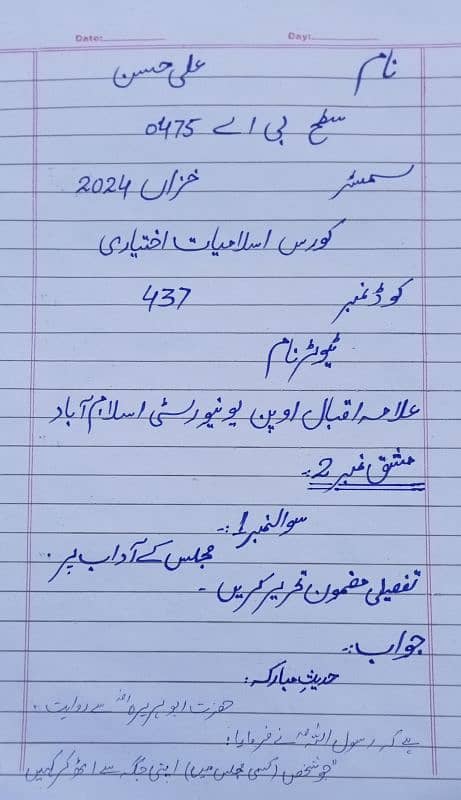 Date:
Day:
نام علی حسن
سطح بی اے 0475
سمسٹر خزاں 2024
کورس اسلامیات اختیاری
کوڈ نمبر 437
ٹیوٹر نام
علامہ اقبال اوپن یونیورسٹی اسلام آباد
مشق نمبر 2:-
سوالنمبر 1:-
مجلس کے آداب پر
تفصیلی مضمون تحریر کریں -
جواب:-
حدیث مبارکہ:
حضرت ابو ہریرہؓ سے روایت
ہے کہ رسول اللہﷺ نے فرمایا:
"جو شخص (کسی مجلس میں) اپنی جگہ سے اٹھ کر کہیں